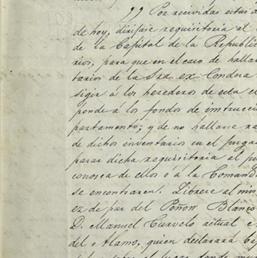 Por recividas
de hoy, dirijase requisitoria al
de la Capital de la Republic
rios, para que en el caso de halla
tarios de la Sra. ex Condesa
sija á los herederos de esta
ponde á los fondos de instrucci
partamento; y de no hallarse
de dichos inventarios en el juzga
pasar dicha requisitoria al
conosca de ellos ó á la Comand
se encontraren. Librese al min
ez de paz del Peñon Blanco
D. Manuel Cuevolo actual
del Alamo, quien declarará